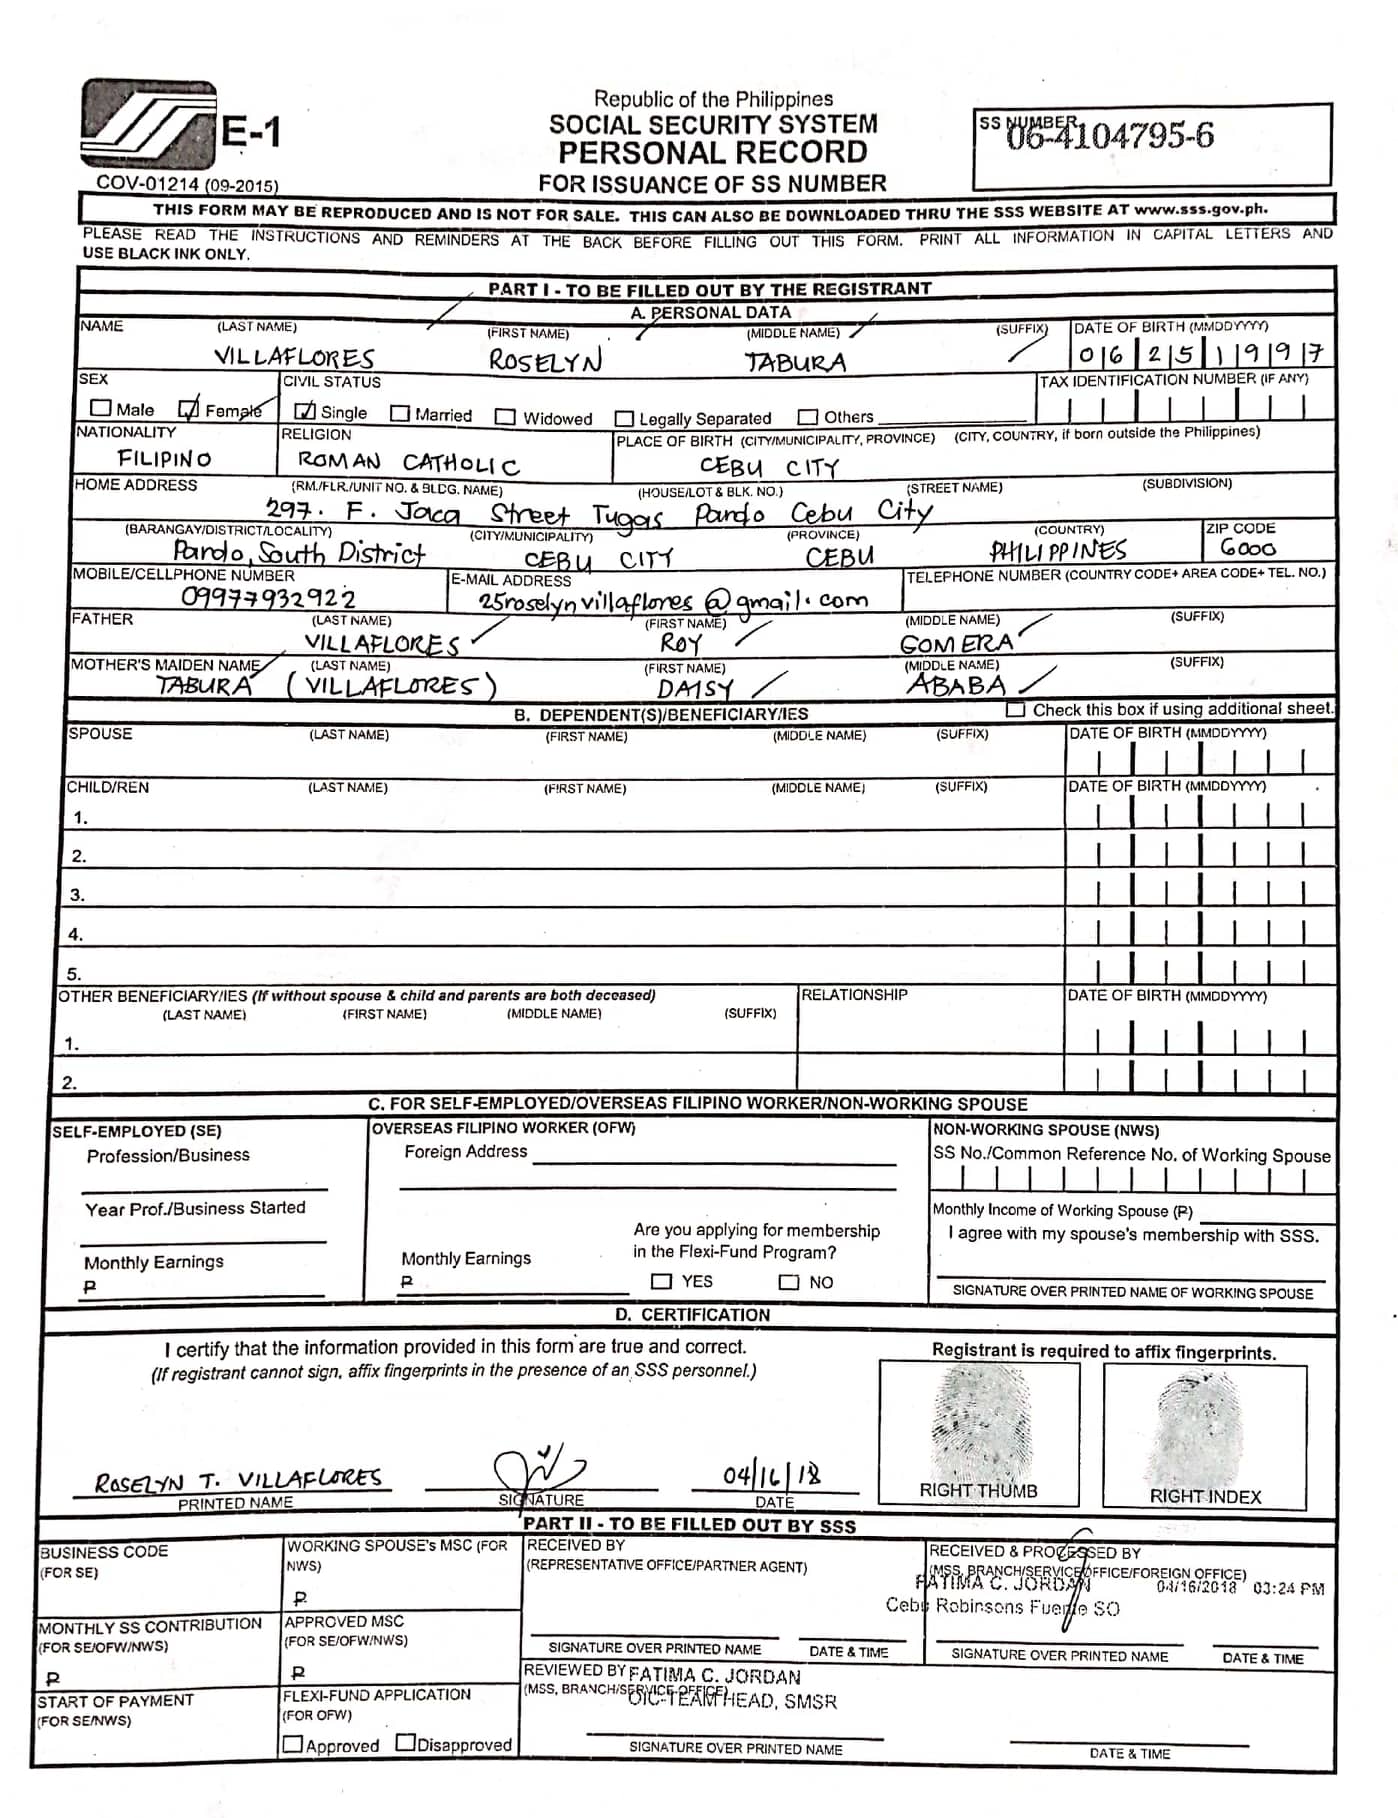 Republic of the Philippines
SOCIAL SECURITY SYSTEM
PERSONAL RECORD
FOR ISSUANCE OF SS NUMBER
E-1
COV-01214 (09-2015)
SS NUMBER
06-4104795-6
THIS FORM MAY BE REPRODUCED AND IS NOT FOR SALE. THIS CAN ALSO BE DOWNLOADED THRU THE SSS WEBSITE AT www.sss.gov.ph.
PLEASE READ THE INSTRUCTIONS AND REMINDERS AT THE BACK BEFORE FILLING OUT THIS FORM. PRINT ALL INFORMATION IN CAPITAL LETTERS AND
USE BLACK INK ONLY.
PART I - TO BE FILLED OUT BY THE REGISTRANT
A. PERSONAL DATA
NAME (LAST NAME) (FIRST NAME) (MIDDLE NAME) (SUFFIX) DATE OF BIRTH (MMDDYYYY)
VILLAFLORES ROSELYN TABURA 06251997
SEX CIVIL STATUS TAX IDENTIFICATION NUMBER (IF ANY)
Male Female Single Married Widowed Legally Separated Others
NATIONALITY RELIGION PLACE OF BIRTH (CITY/MUNICIPALITY, PROVINCE) (CITY, COUNTRY, if born outside the Philippines)
FILIPINO ROMAN CATHOLIC CEBU CITY
HOME ADDRESS (RM./FLR./UNIT NO. & BLDG. NAME) (HOUSE/LOT & BLK. NO.) (STREET NAME) (SUBDIVISION)
297. F. Jaca Street Tugas Pardo Cebu City
(BARANGAY/DISTRICT/LOCALITY) (CITY/MUNICIPALITY) (PROVINCE) (COUNTRY) ZIP CODE
Pardo, South District CEBU CITY CEBU PHILIPPINES 6000
MOBILE/CELLPHONE NUMBER E-MAIL ADDRESS TELEPHONE NUMBER (COUNTRY CODE+ AREA CODE+ TEL. NO.)
09977932922 25roselynvillaflores@gmail.com
FATHER (LAST NAME) (FIRST NAME) (MIDDLE NAME) (SUFFIX)
VILLAFLORES ROY GOMERA
MOTHER'S MAIDEN NAME (LAST NAME) (FIRST NAME) (MIDDLE NAME) (SUFFIX)
TABURA (VILLAFLORES) DAISY ABABA
B. DEPENDENT(S)/BENEFICIARY/IES Check this box if using additional sheet.
SPOUSE (LAST NAME) (FIRST NAME) (MIDDLE NAME) (SUFFIX) DATE OF BIRTH (MMDDYYYY)
CHILD/REN (LAST NAME) (FIRST NAME) (MIDDLE NAME) (SUFFIX) DATE OF BIRTH (MMDDYYYY)
1.
2.
3.
4.
5.
OTHER BENEFICIARY/IES (If without spouse & child and parents are both deceased) RELATIONSHIP DATE OF BIRTH (MMDDYYYY)
(LAST NAME) (FIRST NAME) (MIDDLE NAME) (SUFFIX)
1.
2.
C. FOR SELF-EMPLOYED/OVERSEAS FILIPINO WORKER/NON-WORKING SPOUSE
SELF-EMPLOYED (SE)
Profession/Business
Year Prof./Business Started
Monthly Earnings
₱
OVERSEAS FILIPINO WORKER (OFW)
Foreign Address
Monthly Earnings
₱
Are you applying for membership
in the Flexi-Fund Program?
YES NO
NON-WORKING SPOUSE (NWS)
SS No./Common Reference No. of Working Spouse
Monthly Income of Working Spouse (₱)
I agree with my spouse's membership with SSS.
SIGNATURE OVER PRINTED NAME OF WORKING SPOUSE
D. CERTIFICATION
I certify that the information provided in this form are true and correct.
(If registrant cannot sign, affix fingerprints in the presence of an SSS personnel.)
Registrant is required to affix fingerprints.
ROSELYN T. VILLAFLORES 04/16/18
PRINTED NAME SIGNATURE DATE
RIGHT THUMB RIGHT INDEX
PART II - TO BE FILLED OUT BY SSS
BUSINESS CODE
(FOR SE)
WORKING SPOUSE's MSC (FOR
NWS)
₱
MONTHLY SS CONTRIBUTION
(FOR SE/OFW/NWS)
₱
APPROVED MSC
(FOR SE/OFW/NWS)
₱
START OF PAYMENT
(FOR SE/NWS)
FLEXI-FUND APPLICATION
(FOR OFW)
Approved Disapproved
RECEIVED BY
(REPRESENTATIVE OFFICE/PARTNER AGENT)
SIGNATURE OVER PRINTED NAME DATE & TIME
RECEIVED & PROCESSED BY
(MSS, BRANCH/SERVICE OFFICE/FOREIGN OFFICE)
FATIMA C. JORDAN 04/16/2018 03:24 PM
Cebu Robinsons Fuente SO
SIGNATURE OVER PRINTED NAME DATE & TIME
REVIEWED BY FATIMA C. JORDAN
(MSS, BRANCH/SERVICE OFFICE)
OIC-TEAM HEAD, SMSR
SIGNATURE OVER PRINTED NAME
DATE & TIME